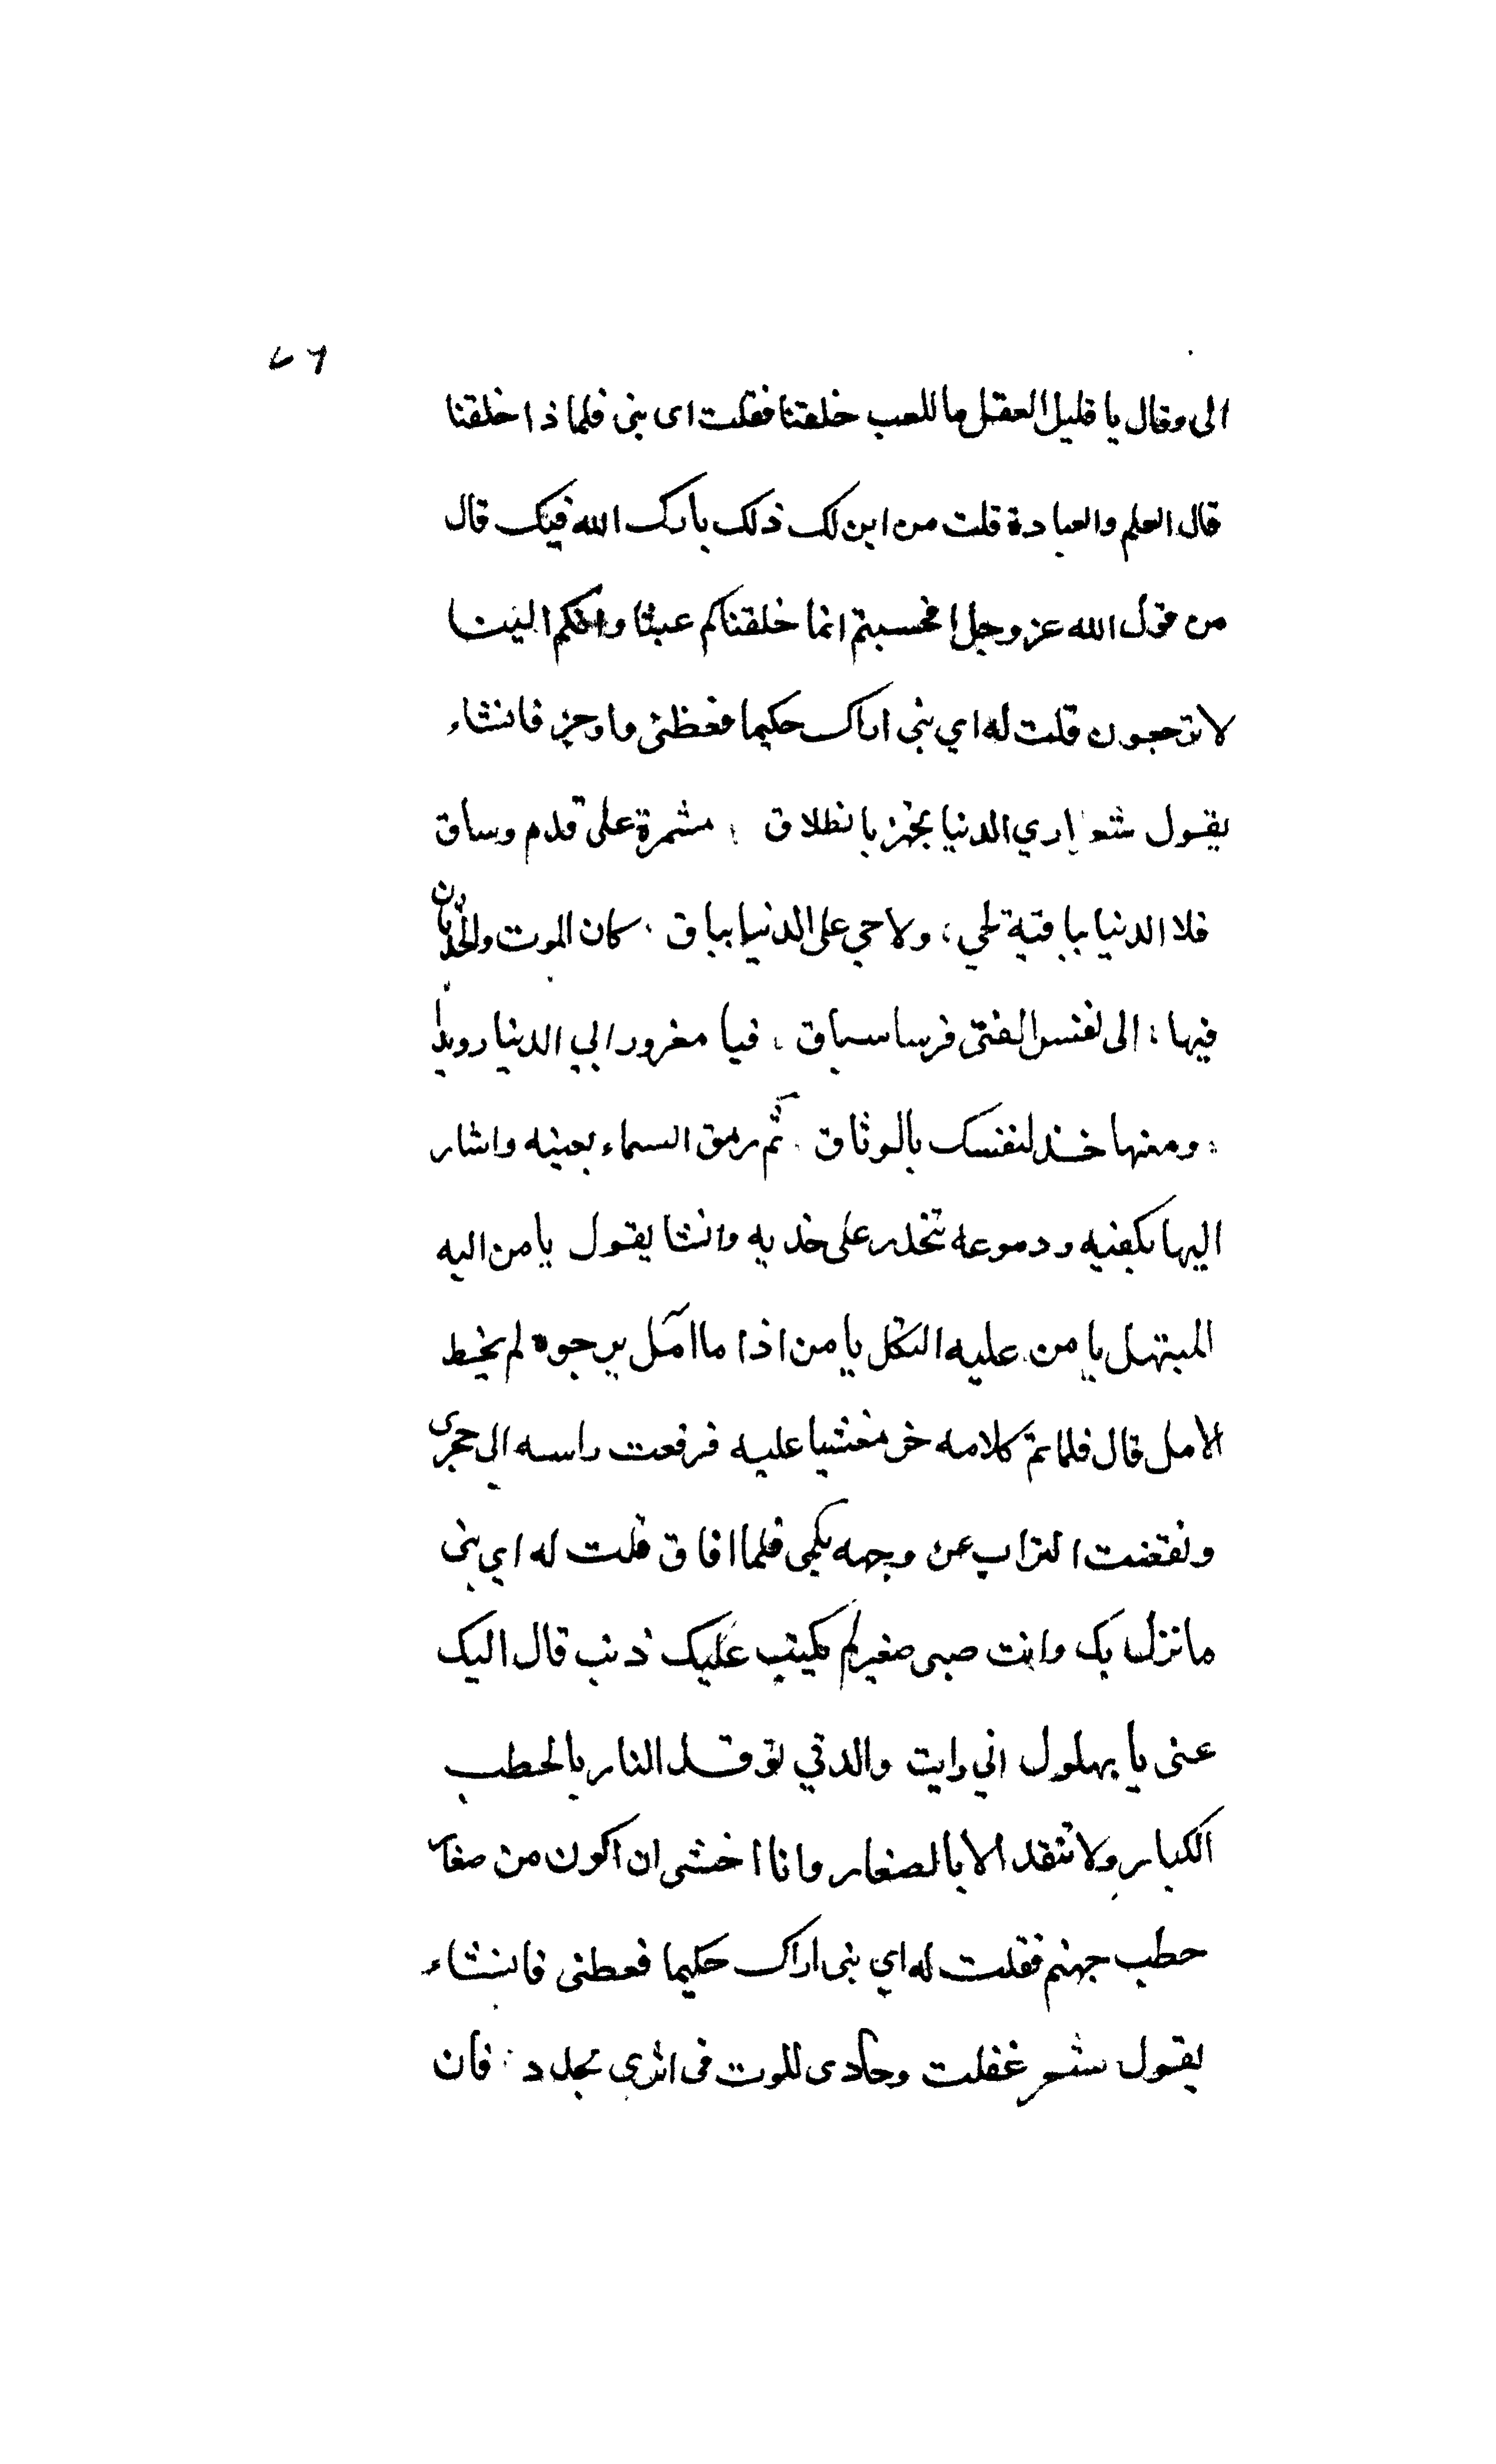 ٦٧
الى وقال يا قليل العقل ما للعب خلقنا فقلت اى بنى فلما ذا خلقنا
قال العلم والعبادة قلت من اين لك ذلك بارك الله فيك قال
من قول الله عز وجل افحسبتم انما خلقناكم عبثا وانكم الينا
لا ترجعون قلت له اي بني اراك حكيما فعظنى واوجز فانشاء
يقول شعر اري الدنيا تجهز بانطلاق ؛ مشمرة على قدم وساق
فلا الدنيا بباقية لحي ؛ ولا حي على الدنيا بباق . كان الموت والحدثان
فيها ؛ الى نفس الفتى فرسا سباق . فيا مغرور الي الدنيا رويدا
؛ ومنها خذ لنفسك بالوثاق . ثم رمق السماء بعينه واشار
اليها بكفيه ودموعه تتحدر على خديه وانشا يقول يا من اليه
المبتهل يا من عليه التكل يا من اذا ما امل يرجوه لم يخط
الامل قال فلما تم كلامه خر مغشيا عليه فرفعت راسه الى حجرى
ونفضت التراب عن وجهه بكمى فلما افاق قلت له اي بنى
ما نزل بك وانت صبى صغير لم يكتب عليك ذنب قال اليك
عنى يا بهلول اني رايت والدتي توقد النار بالحطب
الكبار ولا تتقد الا بالصغار وانا اخشى ان اكون من صغار
حطب جهنم فقلت له اي بنى اراك حكيما فعظنى فانشاء
يقول شعر غفلت وحادى الموت فى اثرى يجدد ؛ فان